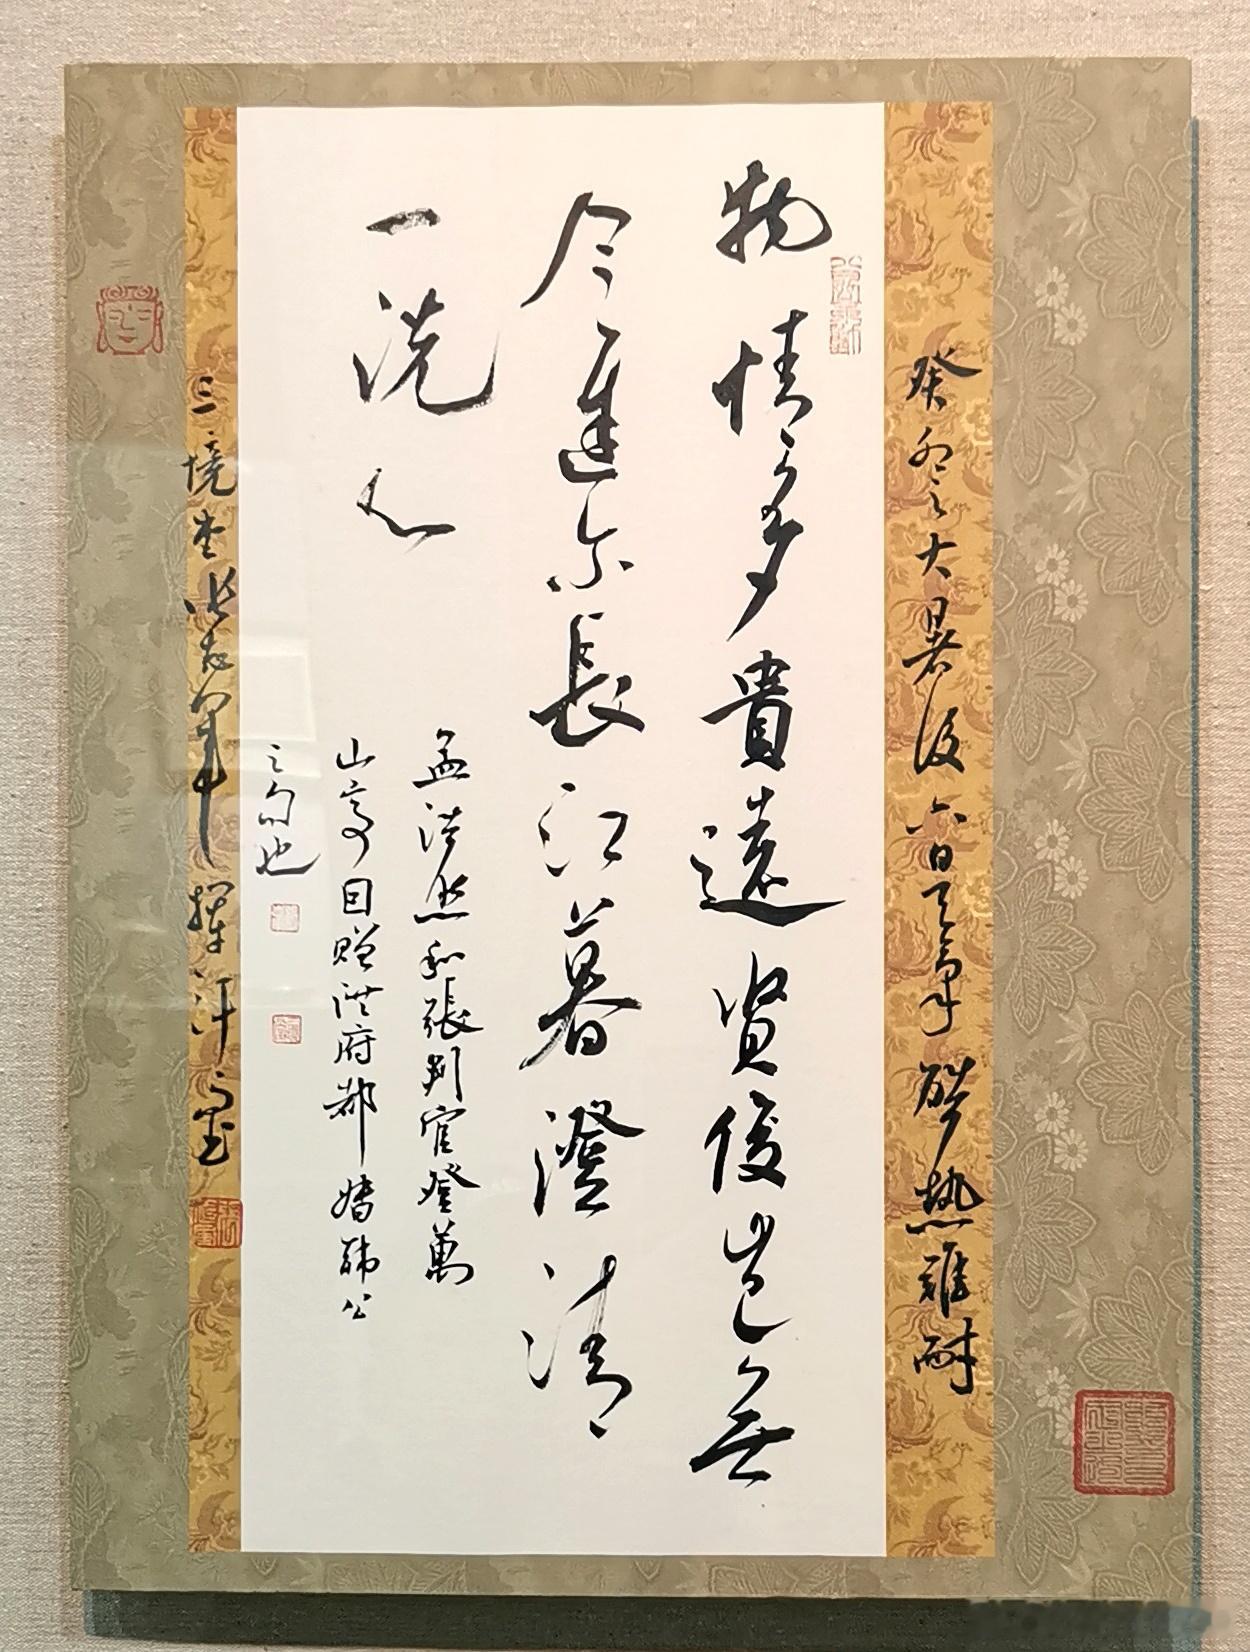 癸卯大暑後六日天氣酷热難耐
物情多貴遠賢俊豈無
今遲尔長江暮澄清
一洗心
孟浩然和張判官登萬
山亭因贈洪府都督韓公
之句也
三境堂張志軍揮汗